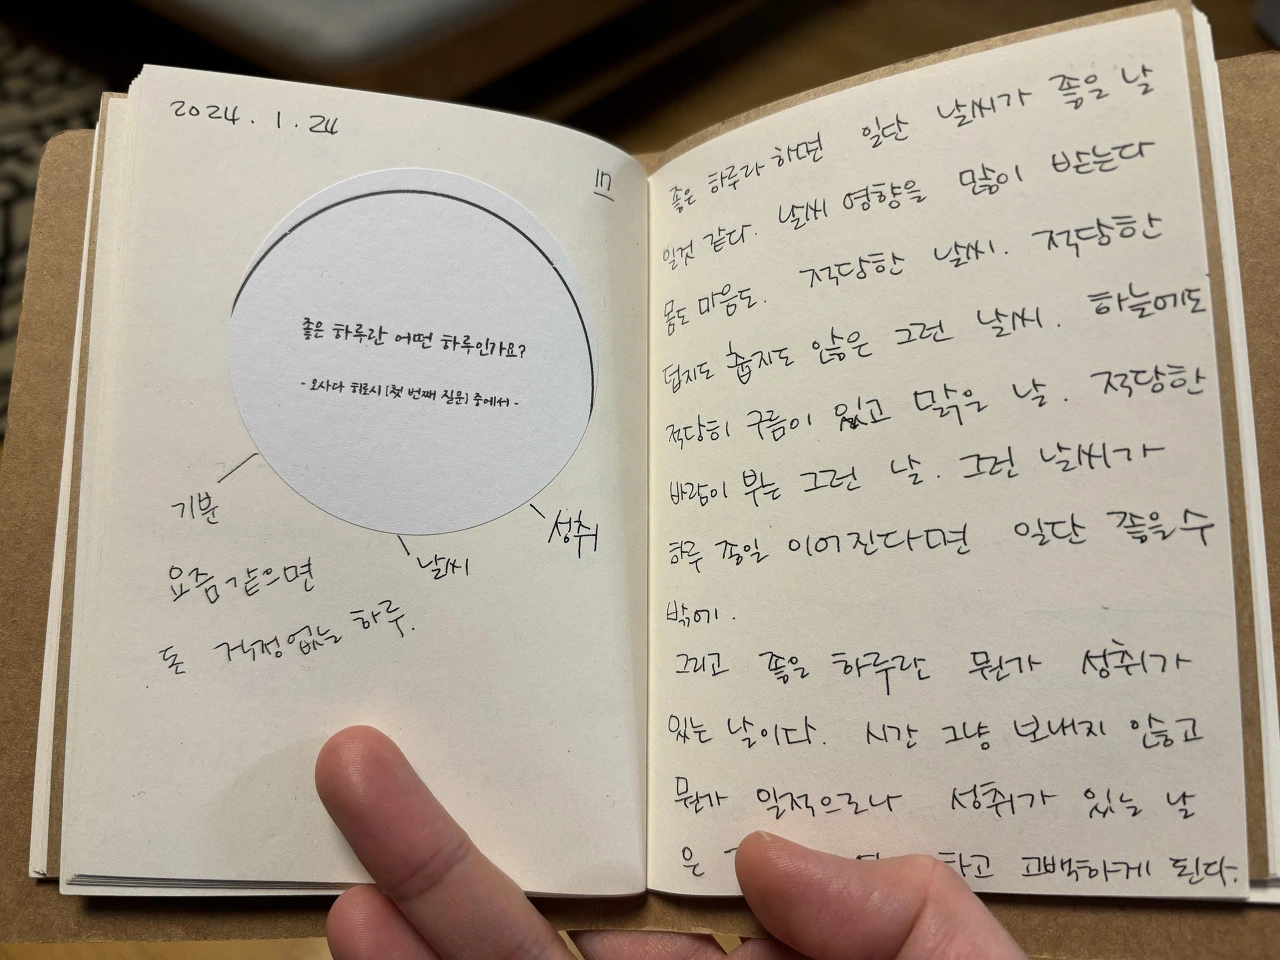 2024. 1. 24
in
좋은 하루란 어떤 하루인가요?
- 오사다 히로시 [첫 번째 질문] 중에서 -
기분
날씨
성취
요즘같으면
돈 걱정없는 하루.
좋은 하루라 하면 일단 날씨가 좋은 날
일것 같다. 날씨 영향을 많이 받는다
몸도 마음도. 적당한 날씨. 적당한
덥지도 춥지도 않은 그런 날씨. 하늘에도
적당히 구름이 있고 맑은 날. 적당한
바람이 부는 그런 날. 그런 날씨가
하루 종일 이어진다면 일단 좋을수
밖에.
그리고 좋은 하루란 뭔가 성취가
있는 날이다. 시간 그냥 보내지 않고
뭔가 일적으로나 성취가 있는 날
은 하고 고백하게 된다.